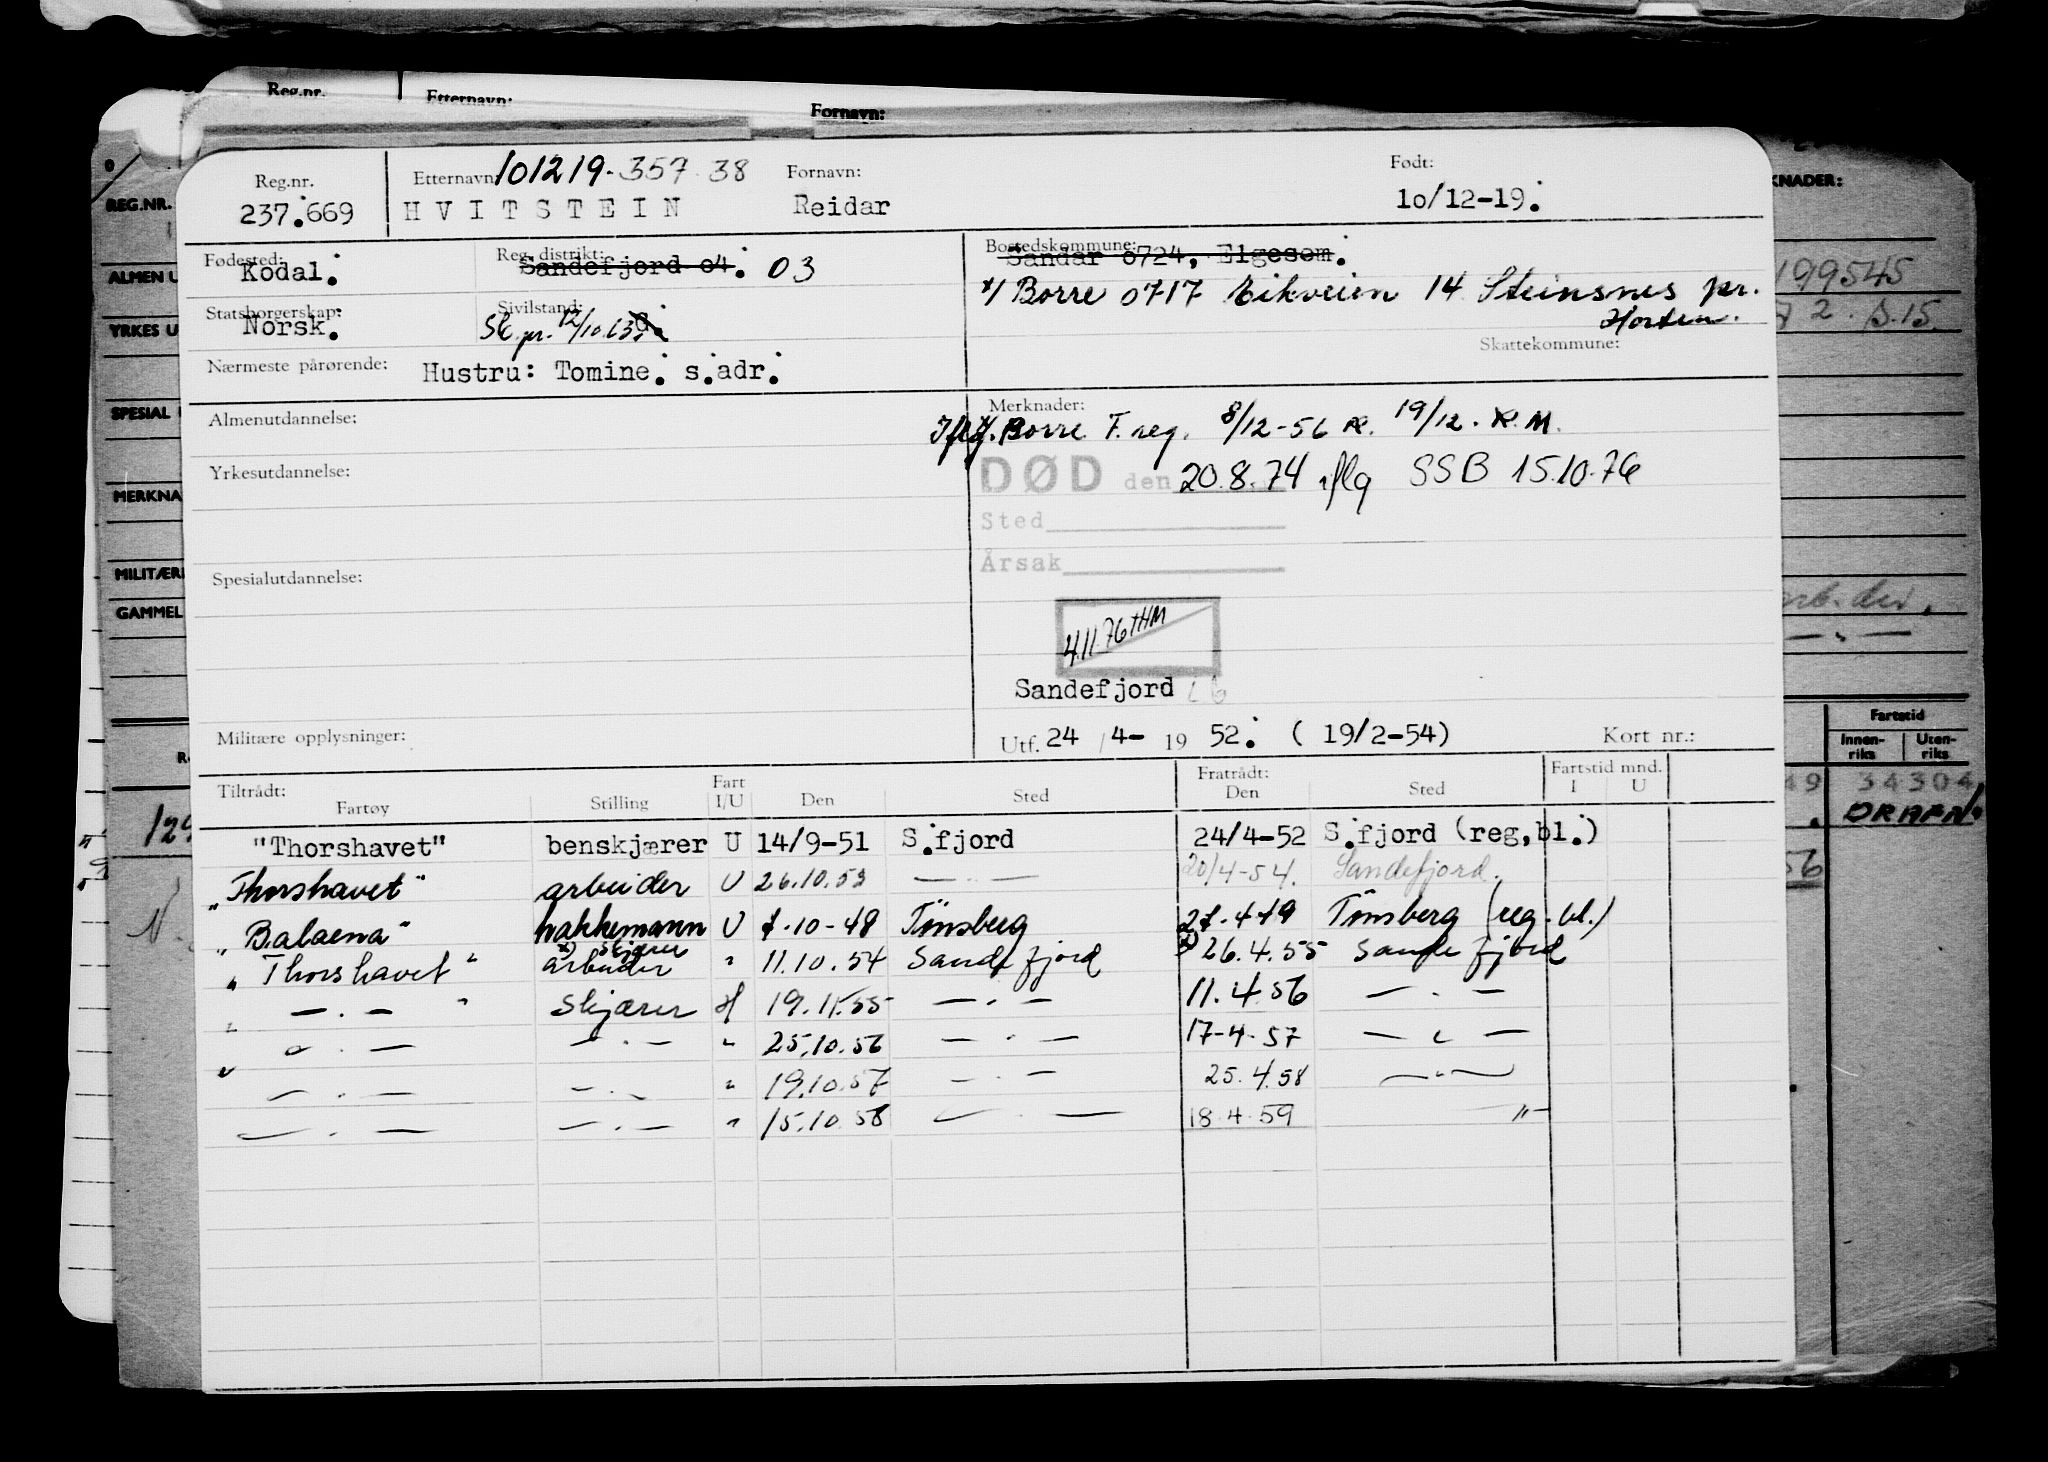 Reg.nr. Etternavn: Fornavn:
Reg.nr. Etternavn 101219-357 38 Fornavn: Født:
237.669 HVITSTEIN Reidar 10/12-19.
Fødested: Kodal. Reg. distrikt: Sandefjord 04. 03 Bostedskommune: Sandar 0724, Elgesem.
x/ Borre 0717 Eikveien 14 Steinsnes pr. Horten.
Statsborgerskap: Norsk. Sivilstand: Sk. pr. 12/10.63
Skattekommune:
Nærmeste pårørende: Hustru: Tomine. s.adr.
Almenutdannelse: Merknader:
Iflg. Borre F.reg. 8/12-56 19/12. K.M.
Yrkesutdannelse: DØD den 20.8.74 iflg SSB 15.10.76
Sted
Årsak
Spesialutdannelse:
4.11.76 HM
Sandefjord
Militære opplysninger: Utf. 24 /4- 19 52. ( 19/2-54) Kort nr.:
Tiltrådt: Fart Fratrådt: Fartstid mnd.
Fartøy Stilling I/U Den Sted Den Sted I U
"Thorshavet" benskjærer U 14/9-51 S.fjord 24/4-52 S.fjord (reg,bl.)
"Thorshavet" arbeider U 26.10.53 — " — 20/4-54. Sandefjord.
"Balaena" hakkemann U 7-10-48 Tønsberg 27-4-49 Tønsberg (reg.bl.)
x) skjærer
"Thorshavet" arbeider " 11.10.54 Sandefjord x) 26.4.55 Sandefjord
" — . — " skjærer H 19.11.55 — . — 11.4.56 — . —
" — . — — . — " 25.10.56 — . — 17-4-57 — " —
— . — — . — " 19.10.57 — . — 25.4.58 — " —
— . — — . — " 15.10.58 — . — 18.4.59 — " —
REG.NR.
ALMEN U
YRKES U
SPESIAL
MERKNA
MILITÆR
GAMMEL
KNADER:
199545
2. S.15.
arb.der.
Fartstid
Innen-riks Uten-riks
49 34304
DRAFN
56